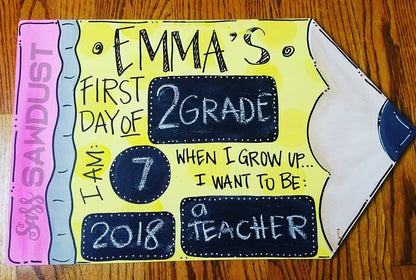 EMMA'S
FIRST
DAY OF
2 GRADE
I AM:
7
WHEN I GROW UP...
I WANT TO BE:
2018
a
TEACHER
Sass SAWDUST